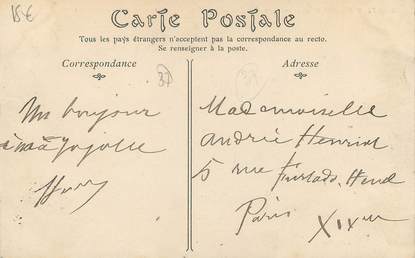 15 €
Carte Postale
Tous les pays étrangers n'acceptent pas la correspondance au recto.
Se renseigner à la poste.
Correspondance
37
Un bonjour
à ma
Adresse
37
Mademoiselle
Andrée Henriot
5 rue Furtado Heine
Paris XIVme